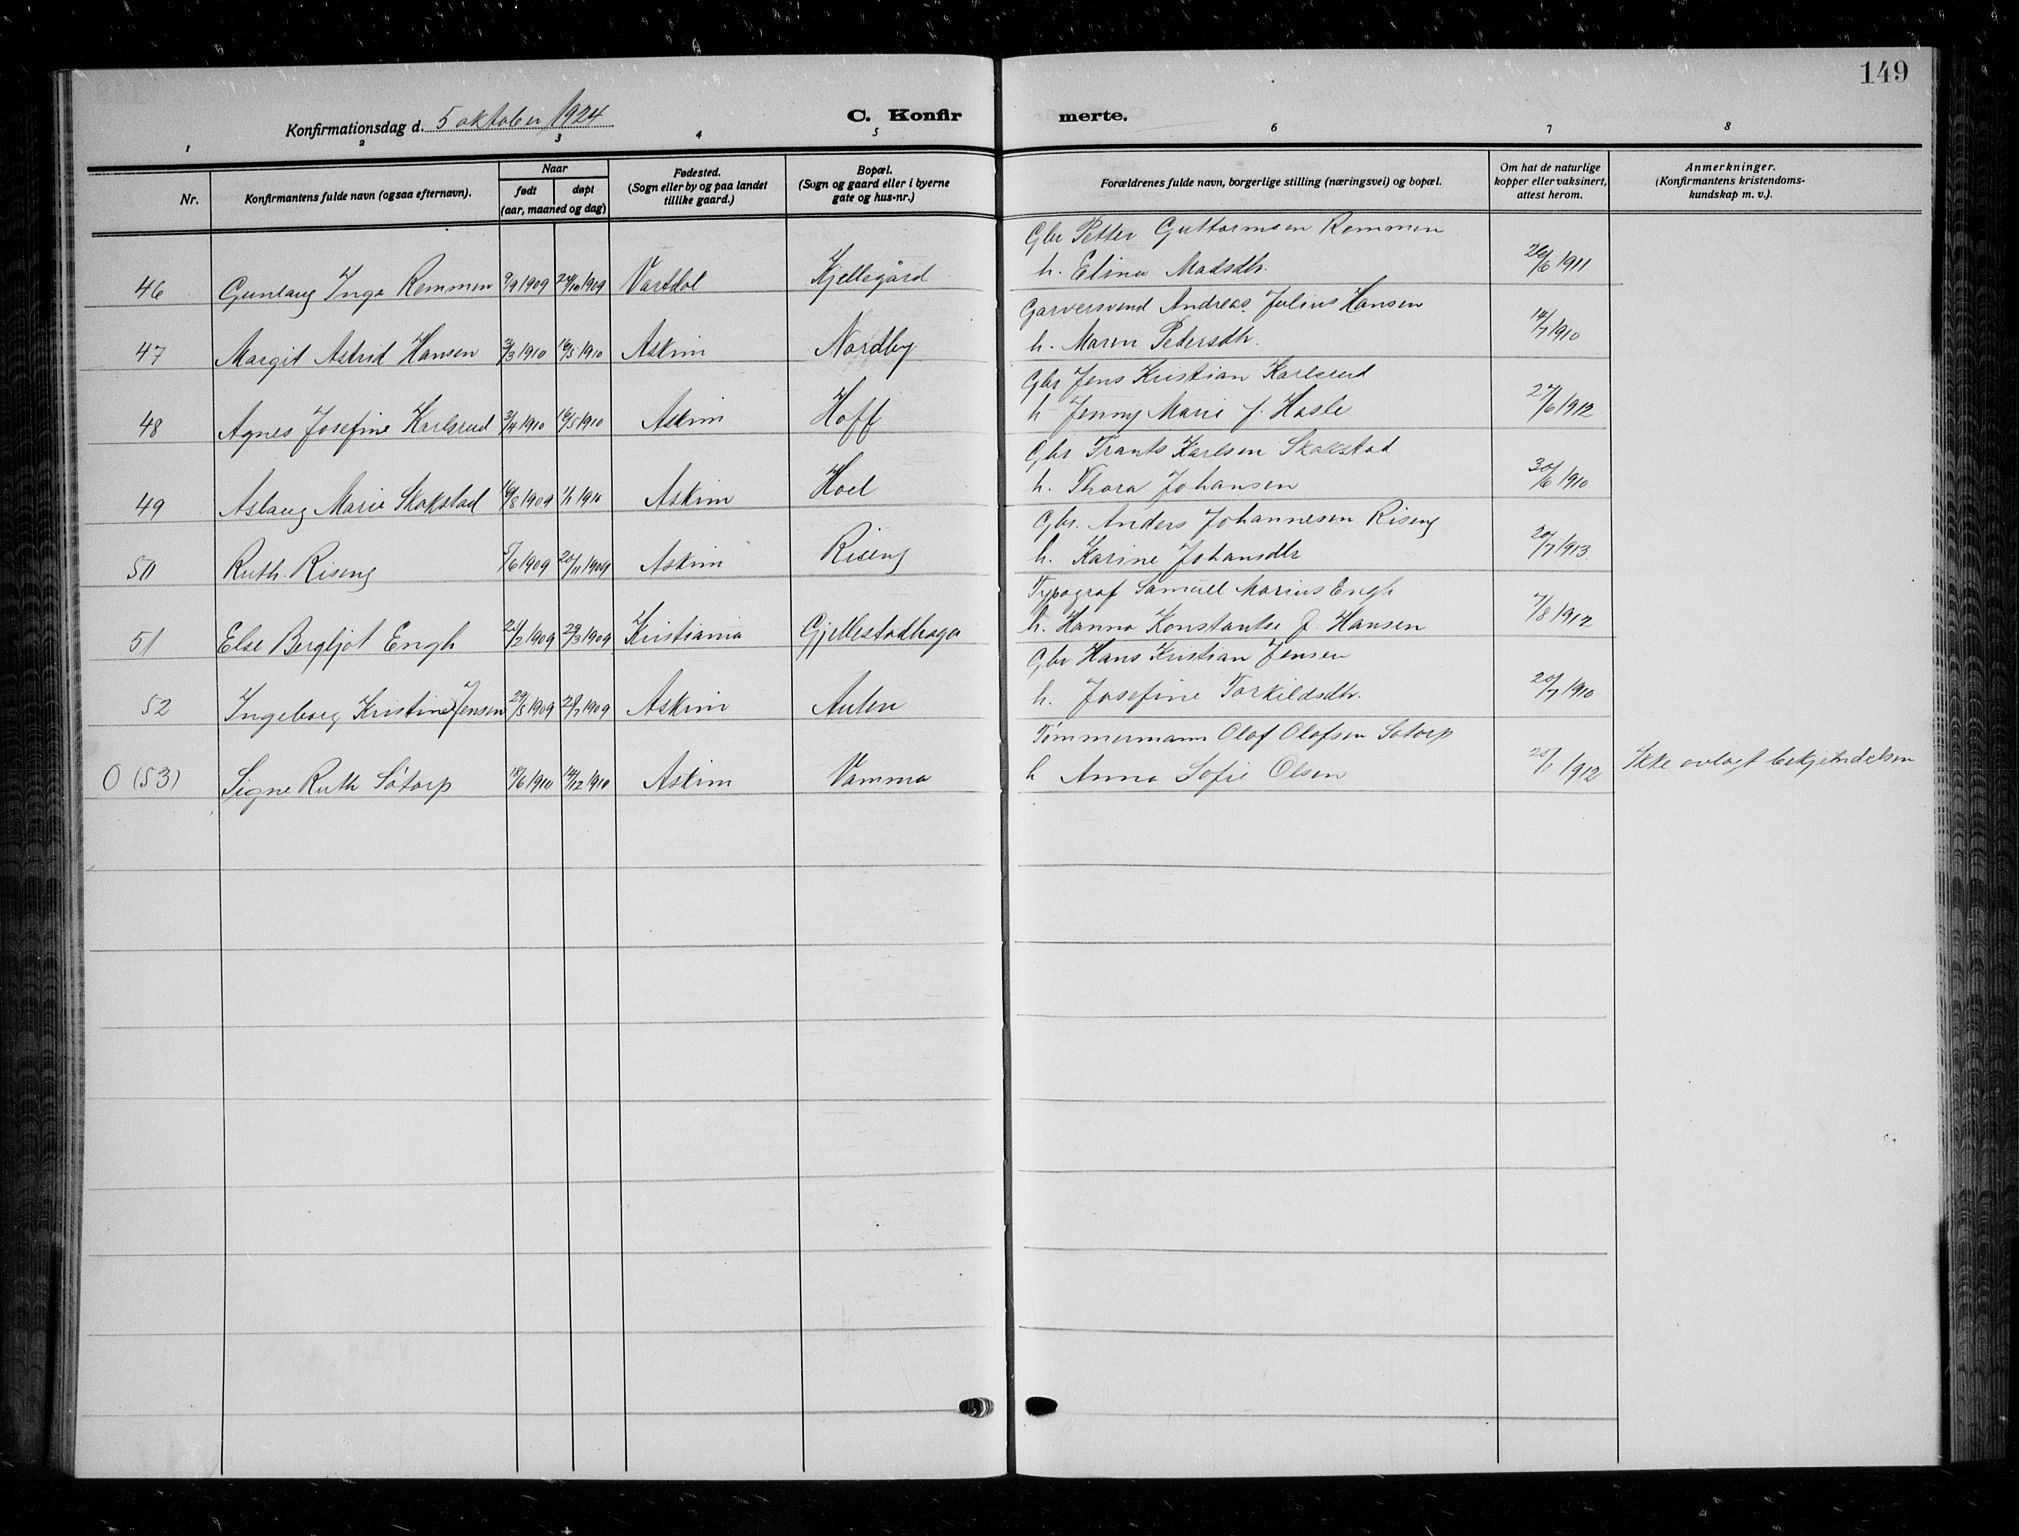 149
Konfirmationsdag d. 5 oktober 1924
C. Konfirmerte.
1 2 3 4 5 6 7 8
Nr. Konfirmantens fulde navn (ogsaa efternavn). Naar født døpt (aar, maaned og dag) Fødested. (Sogn eller by og paa landet tillike gaard.) Bopæl. (Sogn og gaard eller i byerne gate og hus-nr.) Forældrenes fulde navn, borgerlige stilling (næringsvei) og bopæl. Om hat de naturlige kopper eller vaksinert, attest herom. Anmerkninger. (Konfirmantens kristendomskundskap m. v.).
Gbr Petter Guttormsen Remmen
46 Gunlaug Inga Remmen 9/9 1909 24/10 1909 Vartdal Kjellsgård h. Elina Madsdtr. 26/6 1911
Garversvend Andreas Julius Hansen
47 Margit Astrid Hansen 3/3 1910 16/5 1910 Askim Nordby h. Maren Pedersdtr. 14/7 1910
Gbr Jens Kristian Karlsrud
48 Agnes Josefine Karlsrud 3/4 1910 16/5 1910 Askim Hoff h. Jenny Marie f. Hasle 27/6 1912
Gbr Frants Karlsen Skakstad
49 Aslaug Marie Skakstad 16/8 1909 1/1 1910 Askim Hoel h. Thora Johansen 30/6 1910
Gbr. Anders Johannesen Riseng
50 Ruth Riseng 5/6 1909 20/11 1909 Askim Riseng h. Karine Johansdtr 20/7 1913
Typograf Samuel Marius Engh
51 Else Bergljot Engh 21/2 1909 29/3 1909 Kristiania Gjellestadhaga h. Hanna Konstantse f. Hansen 7/8 1912
Gbr Hans Kristian Jensen
52 Ingeborg Kristine Jensen 29/5 1909 28/7 1909 Askim Auten h. Josefine Torkildsdtr. 20/7 1910
Tømmermann Olaf Olafsen Sotorp
0 (53) Signe Ruth Søtorp 18/6 1910 14/12 1910 Askim Vamma h Anna Sofie Olsen 25/1 1912 Ikke avlagt bekjendelsen